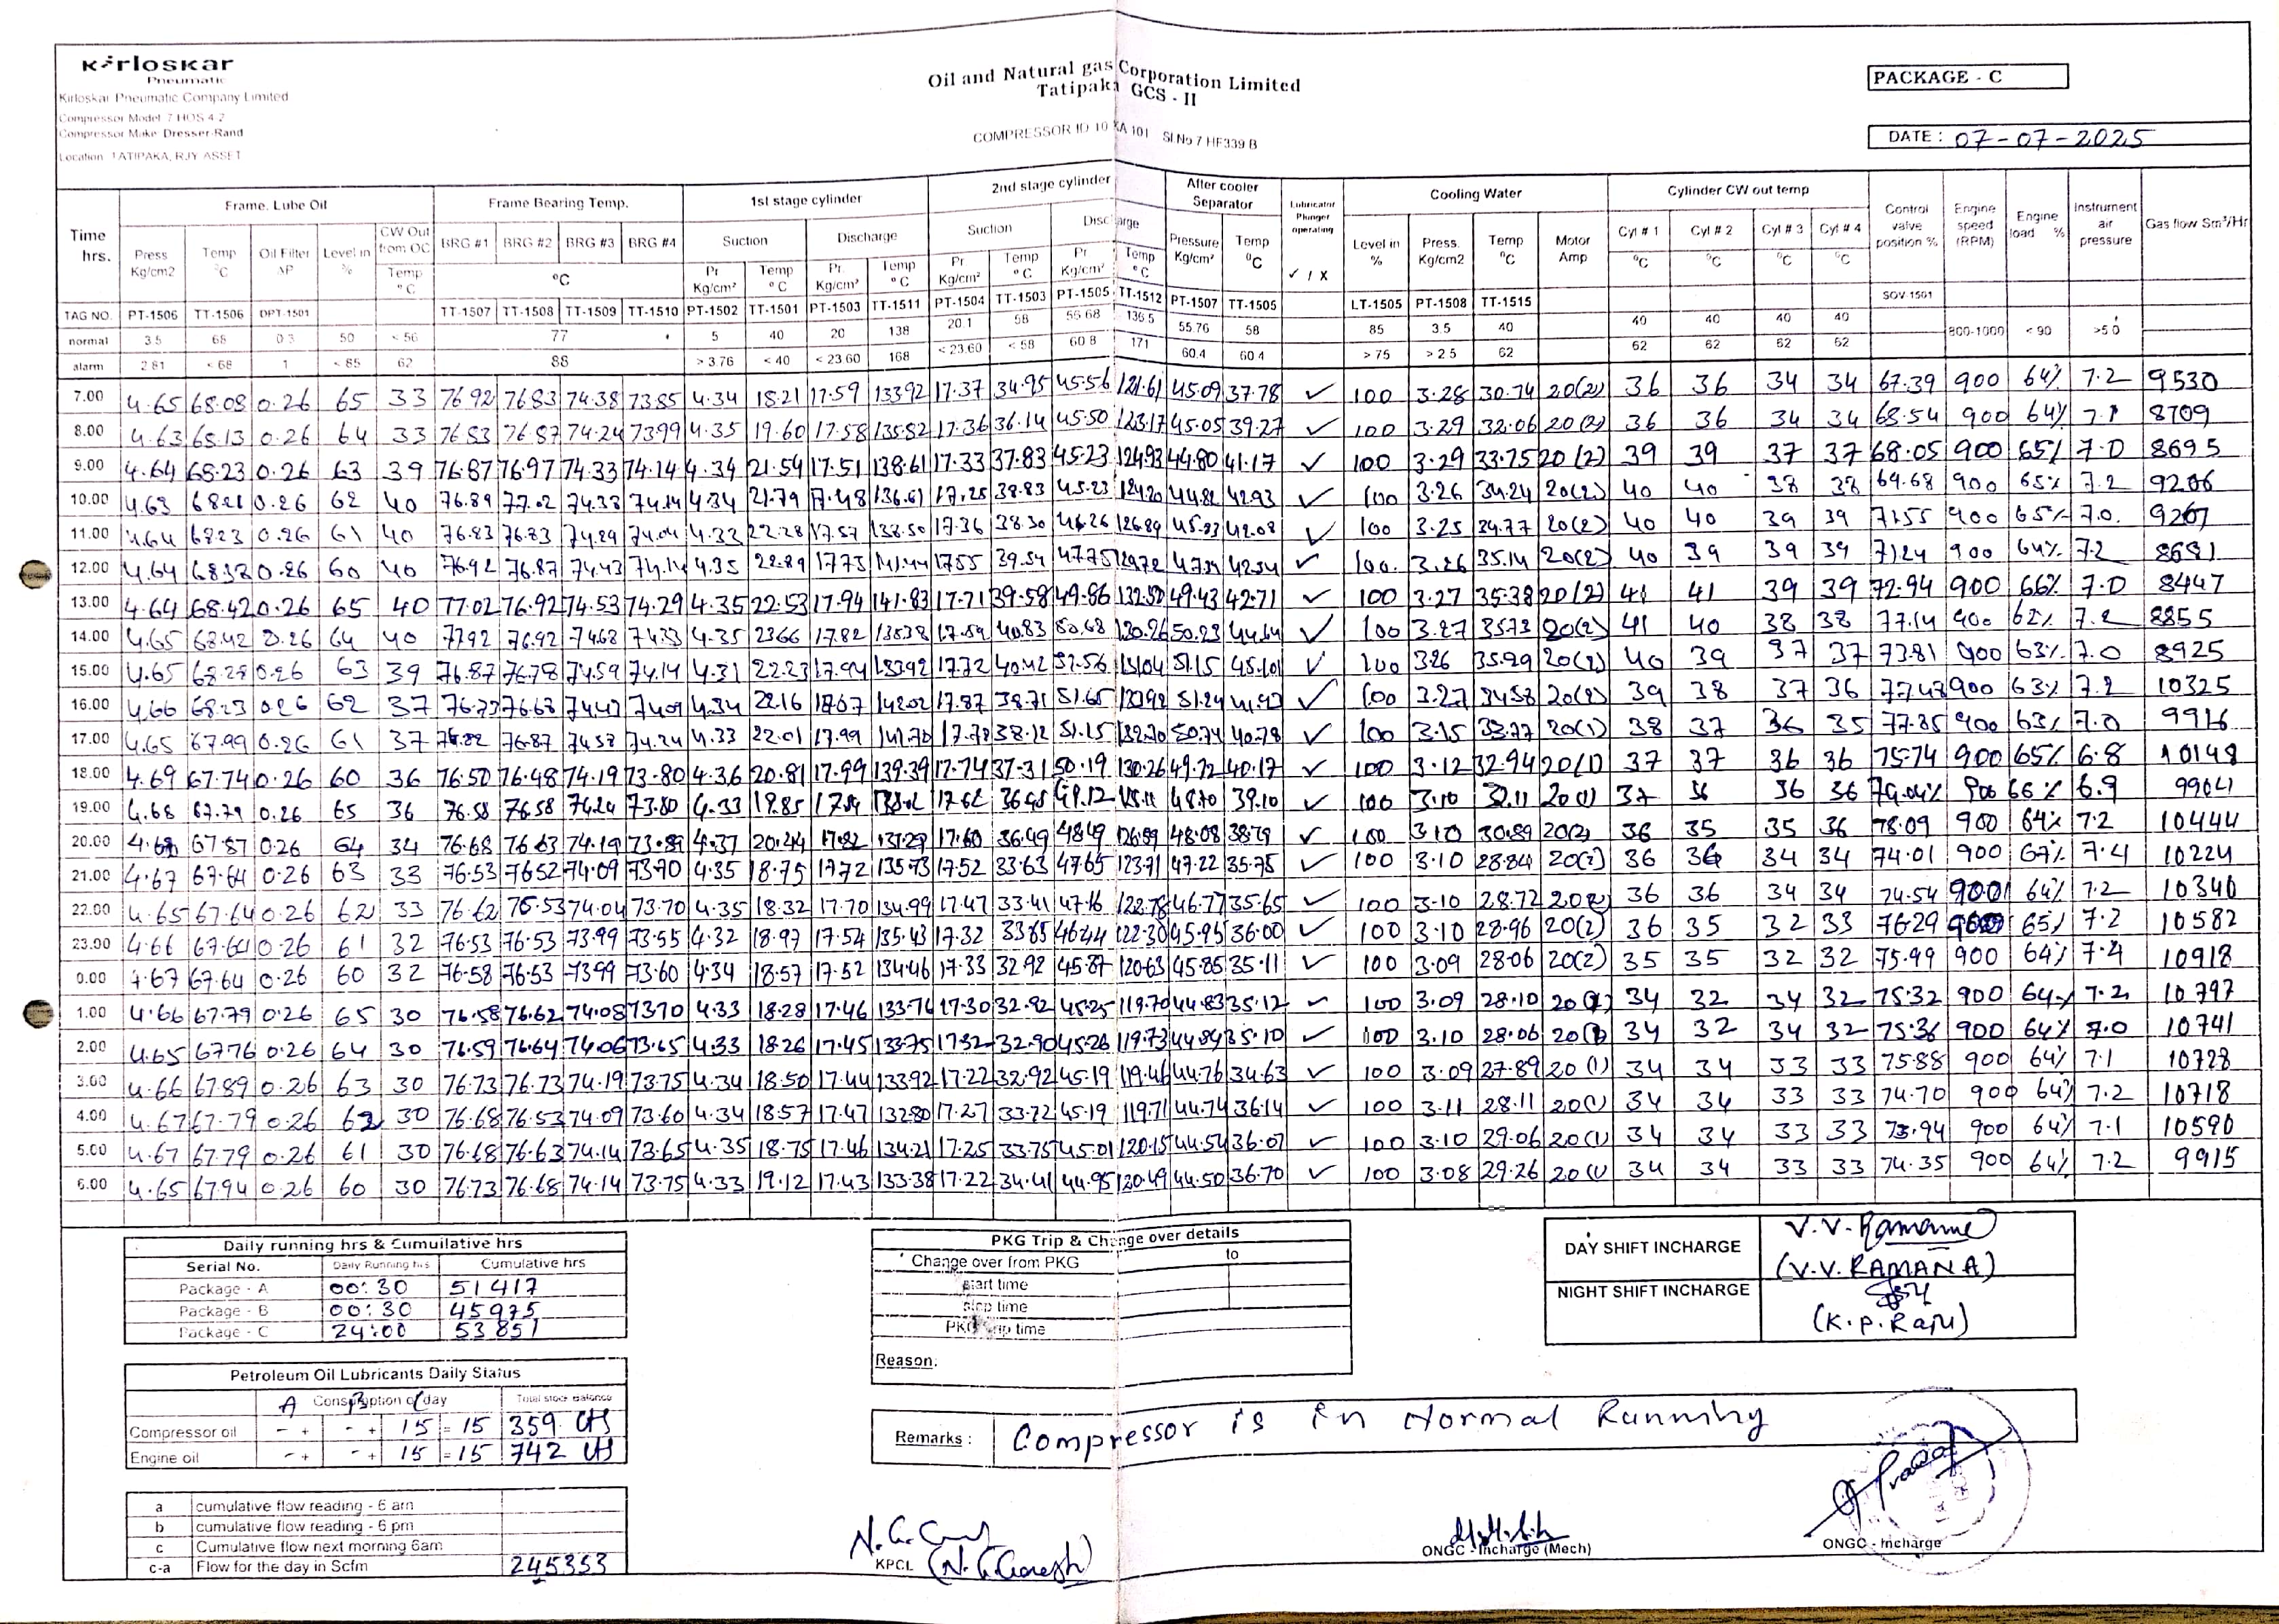 Kirloskar
Pneumatic
Kirloskar Pneumatic Company Limited
Compressor Model 7 HOS 4 2
Compressor Make Dresser-Rand
Location TATIPAKA, RJY ASSET
Oil and Natural gas Corporation Limited
Tatipaka GCS - II
COMPRESSOR ID 10 KA 101 Sl No 7 HF339 B
PACKAGE - C
DATE : 07-07-2025
Time hrs. Frame. Lube Oil Frame Bearing Temp. 1st stage cylinder 2nd stage cylinder After cooler Separator Lubricator Plunger operating Cooling Water Cylinder CW out temp Control valve position % Engine speed (RPM) Engine load % Instrument air pressure Gas flow Sm³/Hr
CW Out from OC BRG #1 BRG #2 BRG #3 BRG #4 Suction Discharge Suction Discharge Cyl # 1 Cyl # 2 Cyl # 3 Cyl # 4
Press Kg/cm2 Temp °C Oil Filter ΔP Level in % Temp °C °C Pr Kg/cm² Temp °C Pr. Kg/cm² Temp °C Pr Kg/cm² Temp °C Pr Kg/cm² Temp °C Pressure Kg/cm² Temp °C ✓ / X Level in % Press. Kg/cm2 Temp °C Motor Amp °C °C °C °C
TAG NO. PT-1506 TT-1506 DPT-1501 TT-1507 TT-1508 TT-1509 TT-1510 PT-1502 TT-1501 PT-1503 TT-1511 PT-1504 TT-1503 PT-1505 TT-1512 PT-1507 TT-1505 LT-1505 PT-1508 TT-1515 SOV-1501
normal 3.5 68 0.3 50 < 56 77 5 40 20 138 20.1 58 55 68 136.5 55.76 58 85 3.5 40 40 40 40 40 800-1000 < 90 >5.0
alarm 2.81 < 68 1 < 85 62 88 > 3.76 < 40 < 23.60 168 < 23.60 < 58 60.8 171 60.4 60.4 > 75 > 2.5 62 62 62 62 62
7.00 4.65 68.08 0.26 65 33 76.92 76.83 74.38 73.85 4.34 18.21 17.59 133.92 17.37 34.95 45.56 121.61 45.09 37.78 ✓ 100 3.28 30.74 20(2) 36 36 34 34 67.39 900 64% 7.2 9530
8.00 4.63 68.13 0.26 64 33 76.83 76.87 74.24 73.99 4.35 19.60 17.58 135.82 17.36 36.14 45.50 123.17 45.05 39.27 ✓ 100 3.29 32.06 20(2) 36 36 34 34 68.54 900 64% 7.1 8709
9.00 4.64 68.23 0.26 63 39 76.87 76.97 74.33 74.14 4.34 21.54 17.51 138.61 17.33 37.83 45.23 124.93 44.80 41.17 ✓ 100 3.29 33.75 20(2) 39 39 37 37 68.05 900 65% 7.0 8695
10.00 4.63 68.21 0.26 62 40 76.89 77.02 74.38 74.14 4.34 21.79 17.48 136.61 17.25 38.83 45.23 124.20 44.82 42.93 ✓ 100 3.26 34.24 20(2) 40 40 38 38 69.68 900 65% 7.2 9206
11.00 4.64 68.23 0.26 61 40 76.83 76.83 74.29 74.04 4.33 22.28 17.57 138.50 17.36 38.30 126.89 42.08 ✓ 100 3.25 34.77 20(2) 40 40 39 39 71.55 900 65% 7.0. 9267
12.00 4.64 68.32 0.26 60 40 76.92 76.87 74.43 74.14 4.35 22.89 17.75 141.44 17.55 39.54 47.75 129.72 42.54 ✓ 100. 3.26 35.14 20(2) 40 39 39 39 71.24 900 64% 7.2 8681
13.00 4.64 68.42 0.26 65 40 77.02 76.92 74.53 74.29 4.35 22.53 17.94 141.83 17.71 39.58 49.86 132.50 49.43 42.71 ✓ 100 3.27 35.38 20(2) 41 41 39 39 72.94 900 66% 7.0 8447
14.00 4.65 68.42 0.26 64 40 77.92 76.92 74.68 74.33 4.35 23.66 17.82 138.38 17.59 40.83 50.68 130.26 50.23 44.64 ✓ 100 3.27 35.73 20(2) 41 40 38 38 77.14 900 62% 7.2 8855
15.00 4.65 68.28 0.26 63 39 76.87 76.78 74.59 74.14 4.31 22.23 17.94 139.92 17.72 40.42 51.56 131.04 51.15 45.10 ✓ 100 3.26 35.29 20(2) 40 39 37 37 73.81 900 63% 7.0 8925
16.00 4.66 68.23 0.26 62 37 76.73 76.63 74.43 74.09 4.34 22.16 142.02 17.87 38.71 51.65 51.24 41.97 ✓ 100 3.27 34.58 20(2) 39 38 37 36 77.43 900 63% 7.2 10325
17.00 4.65 67.99 0.26 61 37 76.82 76.87 74.58 74.24 4.33 22.01 17.99 141.70 17.78 38.12 51.15 132.70 50.74 40.78 ✓ 100 3.15 33.77 20(1) 38 37 36 35 77.85 900 63% 7.0 9916
18.00 4.69 67.74 0.26 60 36 76.50 76.48 74.19 73.80 4.36 20.81 17.99 139.39 17.74 37.31 50.19 130.26 49.72 40.17 ✓ 100 3.12 32.94 20(1) 37 37 36 36 75.74 900 65% 6.8 10148
19.00 4.68 67.79 0.26 65 36 76.58 76.58 74.24 73.80 4.33 19.85 17.62 36.45 49.12 48.70 39.10 ✓ 100 3.10 20(1) 37 36 36 36 900 66% 6.9 9904
20.00 4.68 67.87 0.26 64 34 76.68 76.63 74.19 73.89 4.37 20.24 17.82 137.29 17.60 36.49 48.49 126.89 48.08 38.79 ✓ 100 3.10 30.89 20(2) 36 35 35 36 78.09 900 64% 7.2 10444
21.00 4.67 67.64 0.26 63 33 76.53 76.52 74.09 73.70 4.35 18.75 17.72 135.73 17.52 33.63 47.65 123.71 47.22 35.75 ✓ 100 3.10 28.84 20(2) 36 36 34 34 74.01 900 67% 7.4 10224
22.00 4.65 67.64 0.26 62 33 76.62 76.53 74.04 73.70 4.35 18.32 17.70 134.99 17.47 33.41 47.16 122.78 46.77 35.65 ✓ 100 3.10 28.72 20(2) 36 36 34 34 74.54 900 64% 7.2 10340
23.00 4.66 67.64 0.26 61 32 76.53 76.53 73.99 73.55 4.32 18.97 17.54 135.43 17.32 33.65 46.44 122.30 45.95 36.00 ✓ 100 3.10 28.96 20(2) 36 35 32 33 76.29 900 65% 7.2 10582
0.00 4.67 67.64 0.26 60 32 76.58 76.53 73.99 73.60 4.34 18.57 17.52 134.46 17.33 32.92 45.87 120.63 45.85 35.11 ✓ 100 3.09 28.06 20(2) 35 35 32 32 75.99 900 64% 7.4 10918
1.00 4.66 67.79 0.26 65 30 76.58 76.62 74.08 73.70 4.33 18.28 17.46 133.76 17.30 32.92 45.25 119.70 44.83 35.12 ✓ 100 3.09 28.10 20(1) 34 32 34 32 75.32 900 64% 7.2 10797
2.00 4.65 67.76 0.26 64 30 76.59 76.64 74.06 73.65 4.33 18.26 17.45 133.75 17.32 32.90 45.26 119.73 44.84 35.10 ✓ 100 3.10 28.06 20(1) 34 32 34 32 75.36 900 64% 7.0 10741
3.00 4.66 67.89 0.26 63 30 76.73 76.73 74.19 73.75 4.34 18.50 17.44 133.92 17.22 32.92 45.19 119.46 44.76 34.63 ✓ 100 3.09 27.89 20(1) 34 34 33 33 75.88 900 64% 7.1 10728
4.00 4.67 67.79 0.26 62 30 76.68 76.53 74.09 73.60 4.34 18.57 17.47 132.80 17.27 33.72 45.19 119.71 44.74 36.14 ✓ 100 3.11 28.11 20(1) 34 34 33 33 74.70 900 64% 7.2 10718
5.00 4.67 67.79 0.26 61 30 76.68 76.63 74.14 73.65 4.35 18.75 17.46 134.21 17.25 33.75 45.01 120.15 44.54 36.07 ✓ 100 3.10 29.06 20(1) 34 34 33 33 73.94 900 64% 7.1 10590
6.00 4.65 67.94 0.26 60 30 76.73 76.68 74.14 73.75 4.33 19.12 17.43 133.38 17.22 34.41 44.95 120.49 44.50 36.70 ✓ 100 3.08 29.26 20(1) 34 34 33 33 74.35 900 64% 7.2 9915
Daily running hrs & Cumuilative hrs
Serial No. Daily Running hrs Cumulative hrs
Package - A 00:30 51417
Package - B 00:30 45975
Package - C 24:00 53851
PKG Trip & Change over details
Change over from PKG to
start time
stop time
PKG trip time
Reason.
DAY SHIFT INCHARGE V.V. Ramana
(V.V. RAMANA)
NIGHT SHIFT INCHARGE
(K.P. Raju)
Petroleum Oil Lubricants Daily Status
A Consumption of day Total stock balance
Compressor oil - + - + 15 = 15 359 Lts
Engine oil - + - + 15 = 15 742 Lts
Remarks : Compressor is in Normal Running
a cumulative flow reading - 6 am
b cumulative flow reading - 6 pm
c Cumulative flow next morning 6am
c-a Flow for the day in Scfm 245353
KPCL (N. G. Ganesh)
ONGC - Incharge (Mech)
ONGC - Incharge